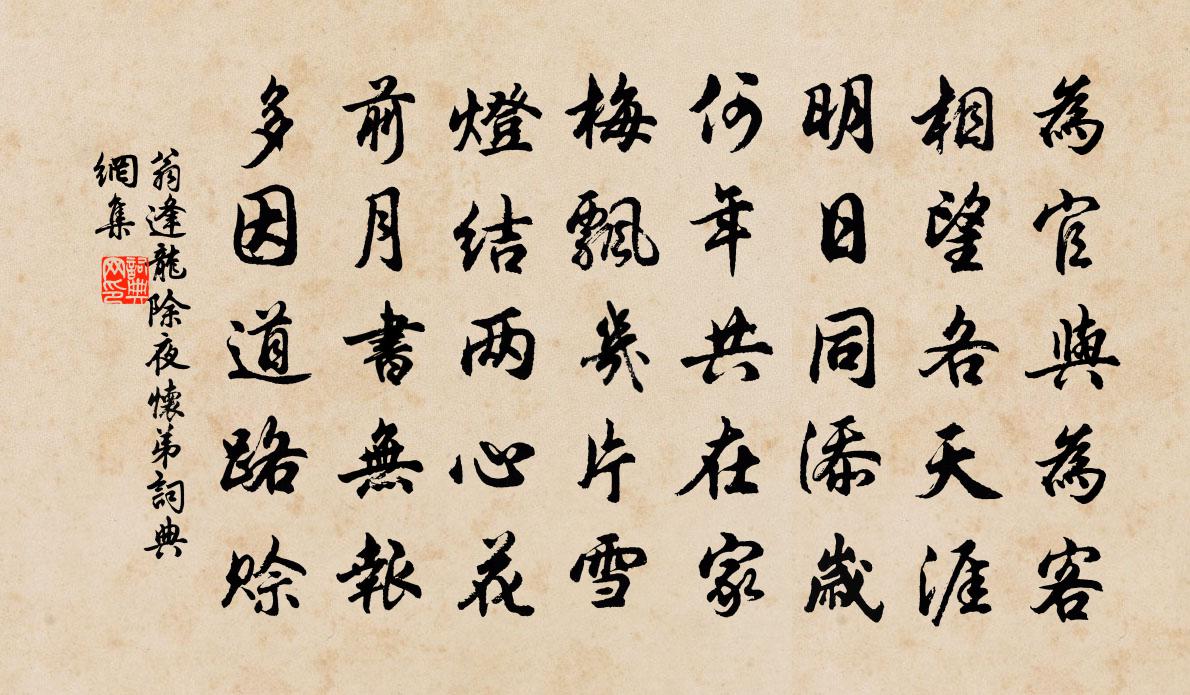 為官與為客
相望各天涯
明日同添歲
何年共在家
梅飄幾片雪
燈結两心花
前月書無報
多因道路賒
翁逢龍除夜懷弟詞典
網集
詞典
网印